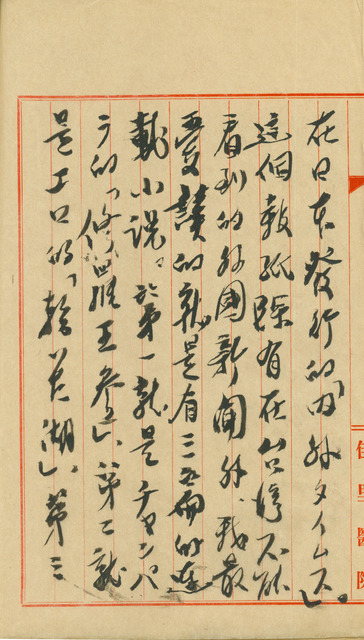 在日本發行的「內外タイムス」。
這個報紙除有在台灣不能
看到的外國新聞外、我最
愛讀的就是有三五面的連
載小說。於第一就是チヤンバ
ラ的「修羅王參上」、第二就
是エロ的「湖」。第三
佳里醫院